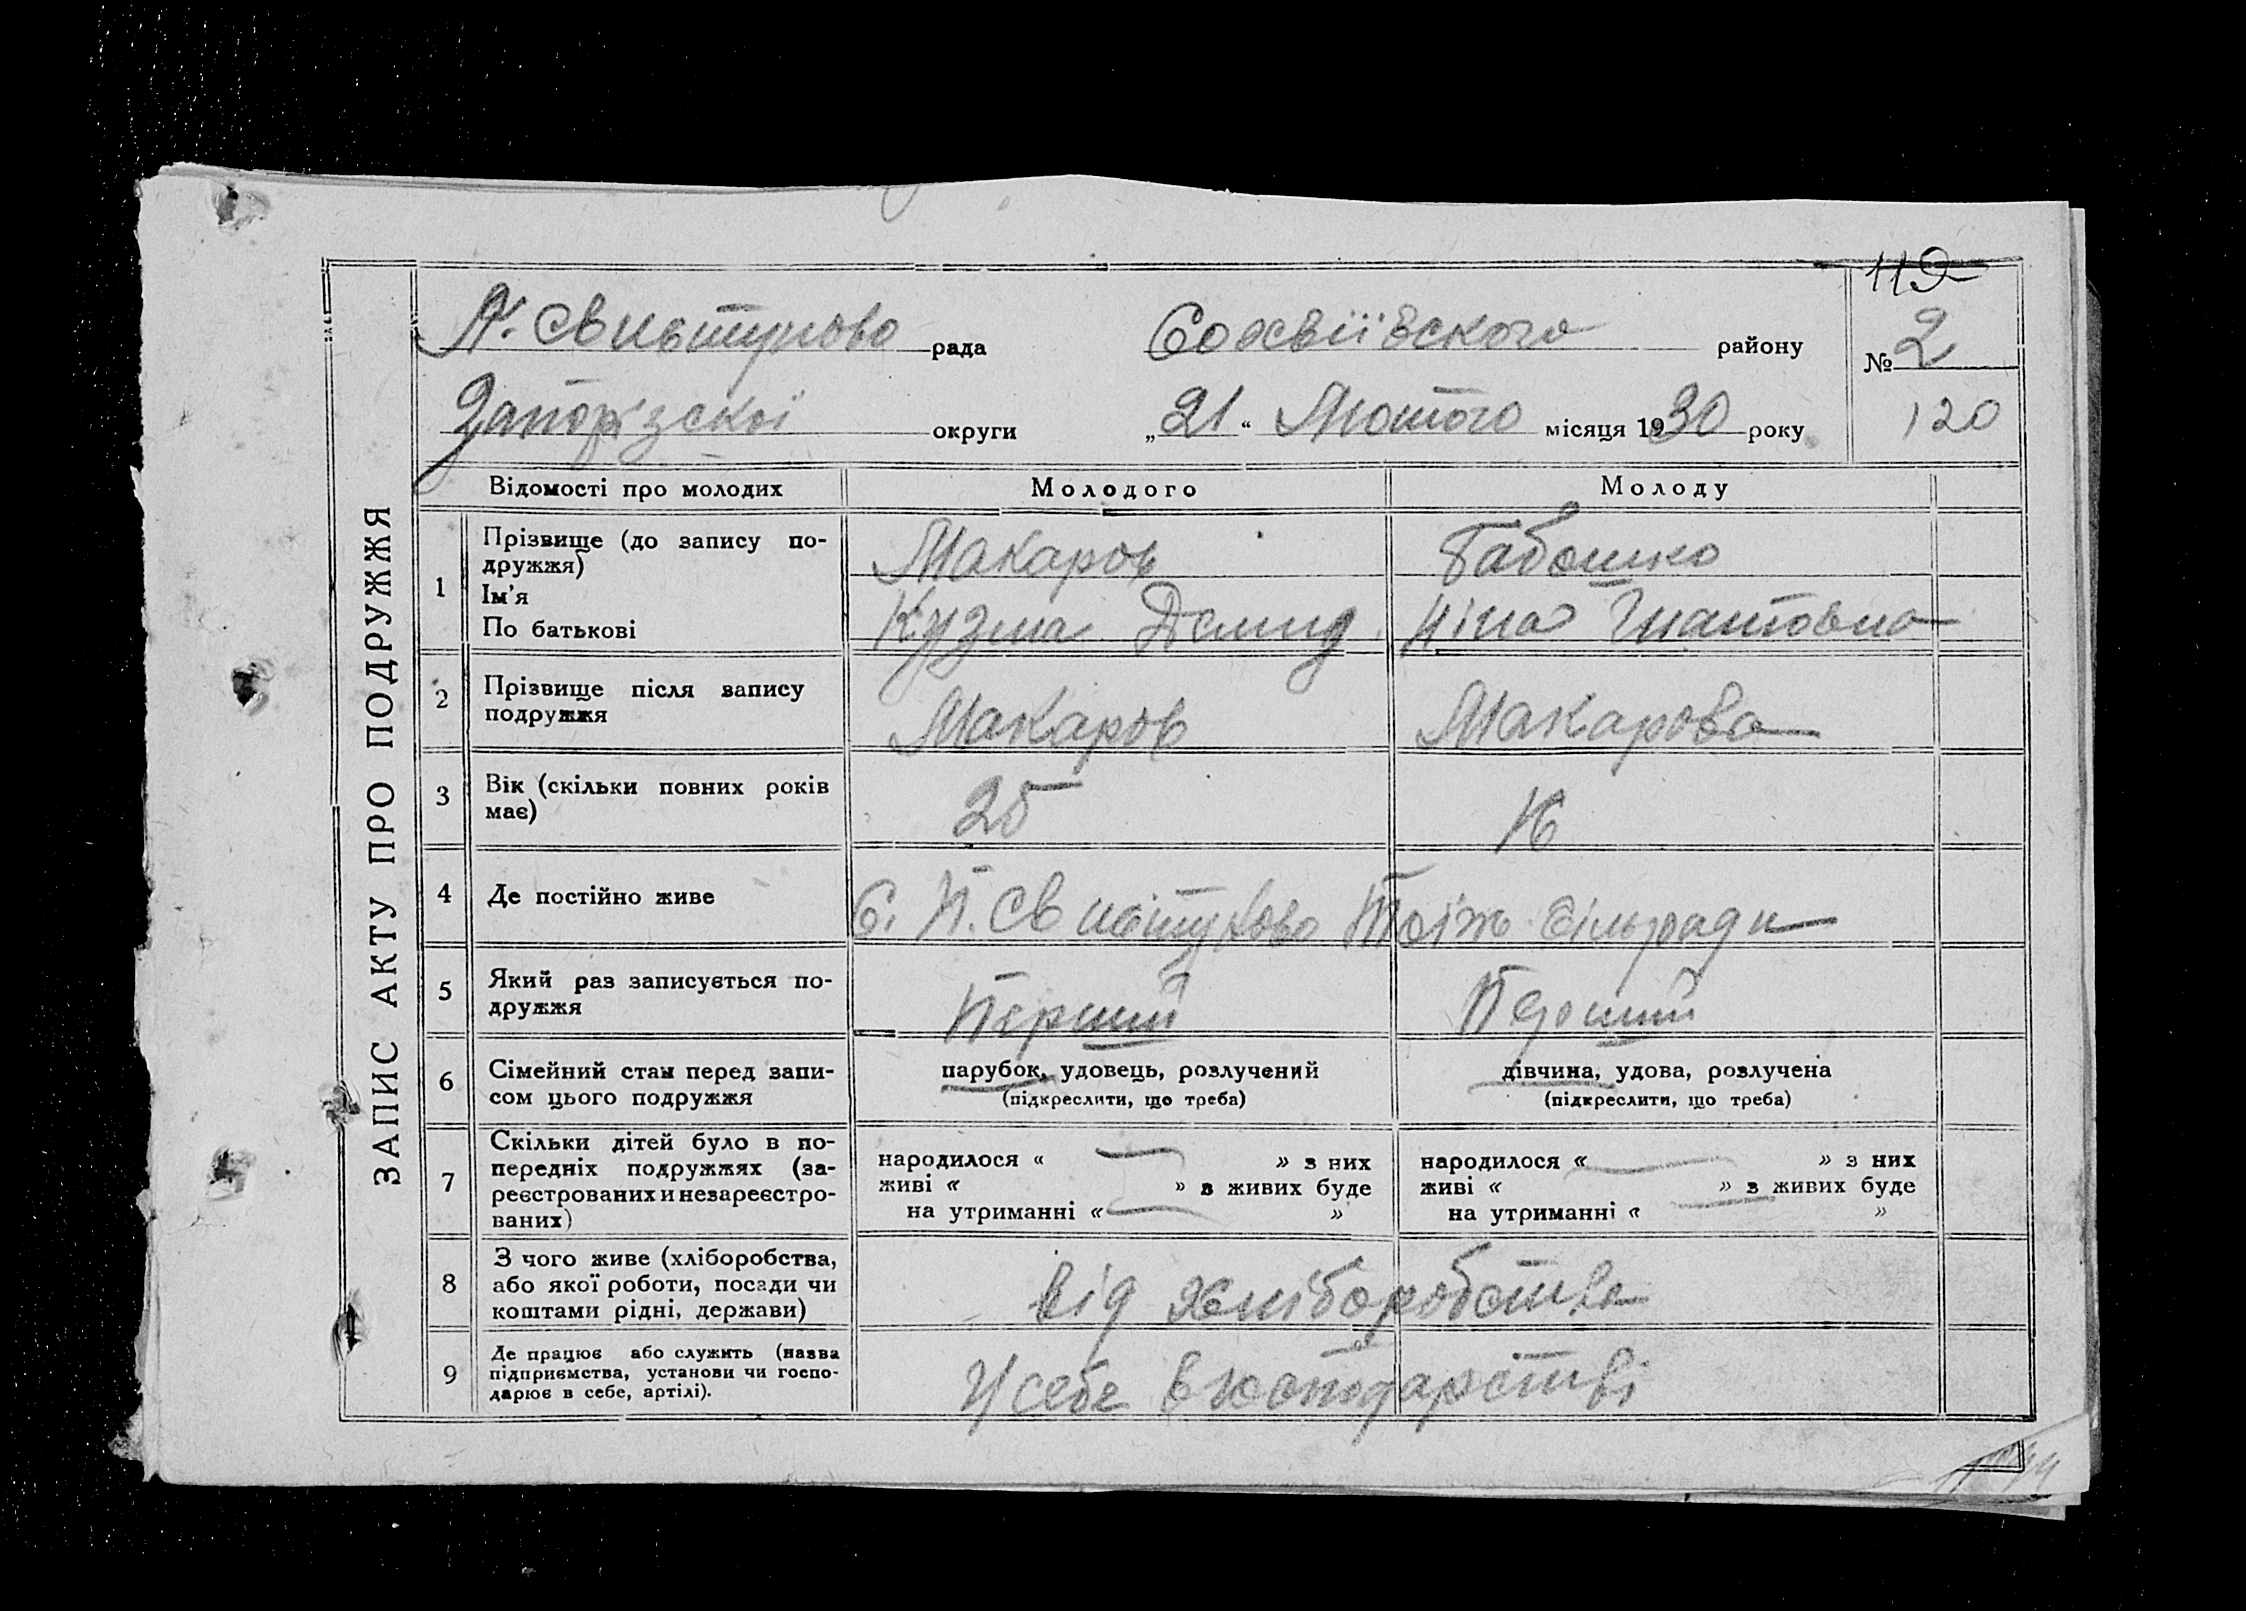 119
Н. Свистуново рада Софвіївского району № 2
Запоріzскої округи „21“ Лютого місяця 1930 року 120
ЗАПИС АКТУ ПРО ПОДРУЖЖЯ
Відомості про молодих Молодого Молоду
1 Прізвище (до запису по-
дружжя) Макаров Бабешко
Ім'я
По батькові Кузма Демид. Ніна
2 Прізвище після запису
подружжя Макаров Макарова
3 Вік (скільки повних років
має) 25 18
4 Де постійно живе С. Н. Свистуново тоіж сільради
5 Який раз записується по-
дружжя Перший Перший
6 Сімейний стан перед запи-
сом цього подружжя парубок, удовець, розлучений дівчина, удова, розлучена
(підкреслити, що треба) (підкреслити, що треба)
7 Скільки дітей було в по-
передніх подружжях (за-
реєстрованих и незареєстро-
ваних)
народилося « — » з них народилося « — » з них
живі « » з живих буде живі « » з живих буде
на утриманні « — » на утриманні « — »
8 З чого живе (хліборобства,
або якої роботи, посади чи
коштами рідні, держави) від хліборобства
9 Де працює або служить (назва
підприємства, установи чи госпо-
дарює в себе, артілі). У себе в хосподарстві